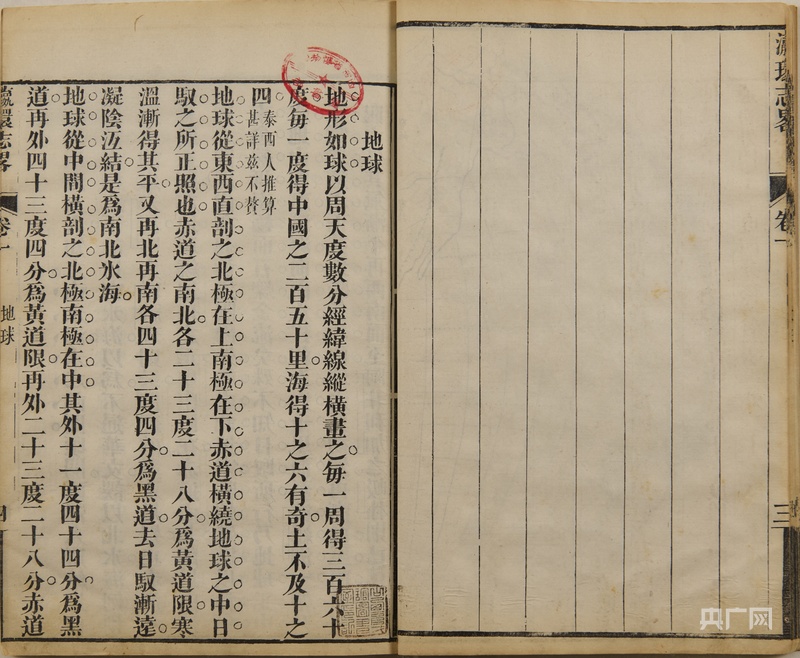 瀛環志畧
卷一
三
地球
地形如球以周天度數分經緯線縱橫畫之每一周得三百六十
度每一度得中國之二百五十里海得十之六有奇土不及十之
四泰西人推算甚詳茲不贅
地球從東西直剖之北極在上南極在下赤道橫繞地球之中日
馭之所正照也赤道之南北各二十三度二十八分爲黃道限寒
溫漸得其平又再北再南各四十三度四分爲黑道去日馭漸遠
凝陰沍結是爲南北氷海
地球從中間橫剖之北極南極在中其外十一度四十四分爲黑
道再外四十三度四分爲黃道限再外二十三度二十八分赤道
瀛環志畧
卷一
地球
四
央广网